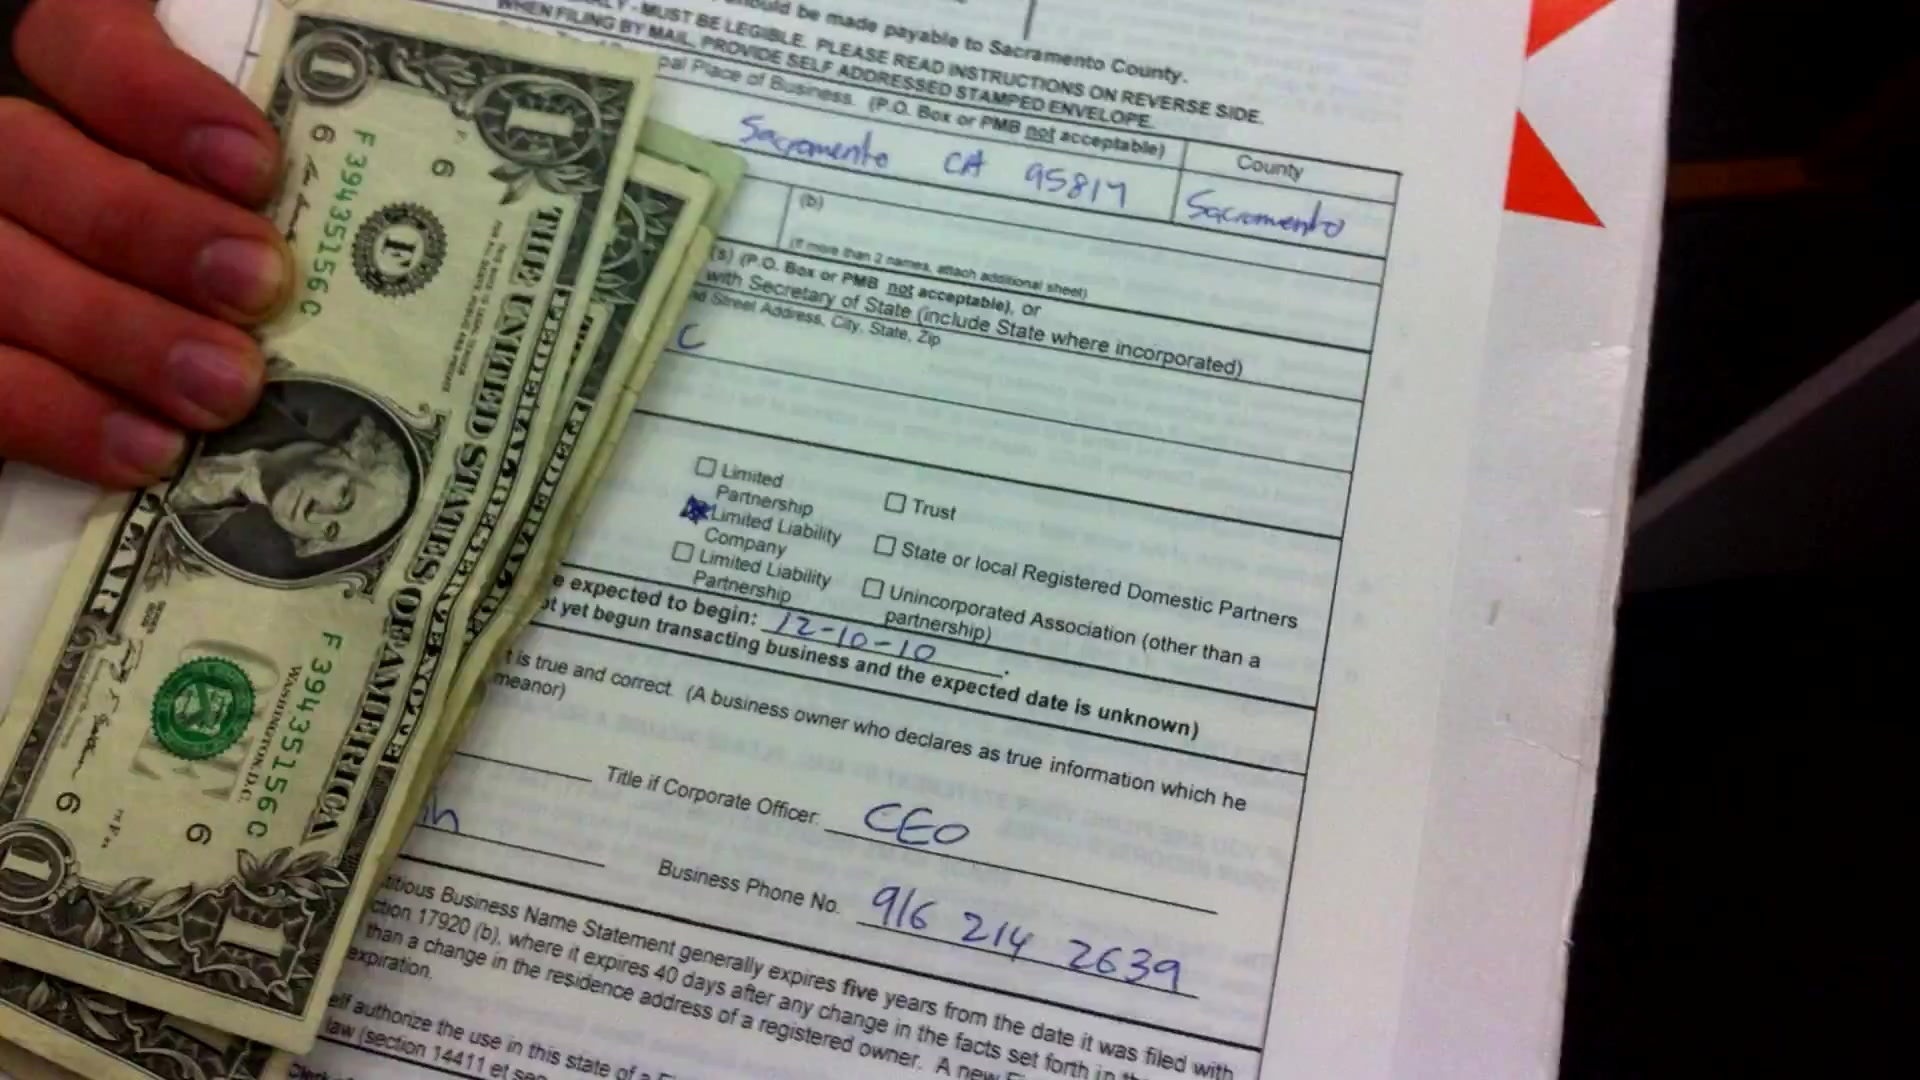 should be made payable to Sacramento County.
- MUST BE LEGIBLE. PLEASE READ INSTRUCTIONS ON REVERSE SIDE.
WHEN FILING BY MAIL, PROVIDE SELF ADDRESSED STAMPED ENVELOPE.
pal Place of Business. (P.O. Box or PMB not acceptable)
County
Sacramento CA 95817
Sacramento
(b)
(If more than 2 names, attach additional sheet)
(s) (P.O. Box or PMB not acceptable), or
with Secretary of State (include State where incorporated)
nd Street Address, City, State, Zip
C
Limited Partnership
Trust
Limited Liability Company
State or local Registered Domestic Partners
Limited Liability Partnership
Unincorporated Association (other than a partnership)
e expected to begin: 12-10-10.
ot yet begun transacting business and the expected date is unknown)
t is true and correct. (A business owner who declares as true information which he
meanor)
Title if Corporate Officer: CEO
Business Phone No. 916 214 2639
titious Business Name Statement generally expires five years from the date it was filed with
ction 17920 (b), where it expires 40 days after any change in the facts set forth in
than a change in the residence address of a registered owner. A new
expiration.
elf authorize the use in this state of a
law (section 14411 et seq
1
1
6
6
F39435156C
F
THE UNITED STATES OF AMERICA
F39435156C
WASHINGTON, D.C.
ONE
6
6
1
1